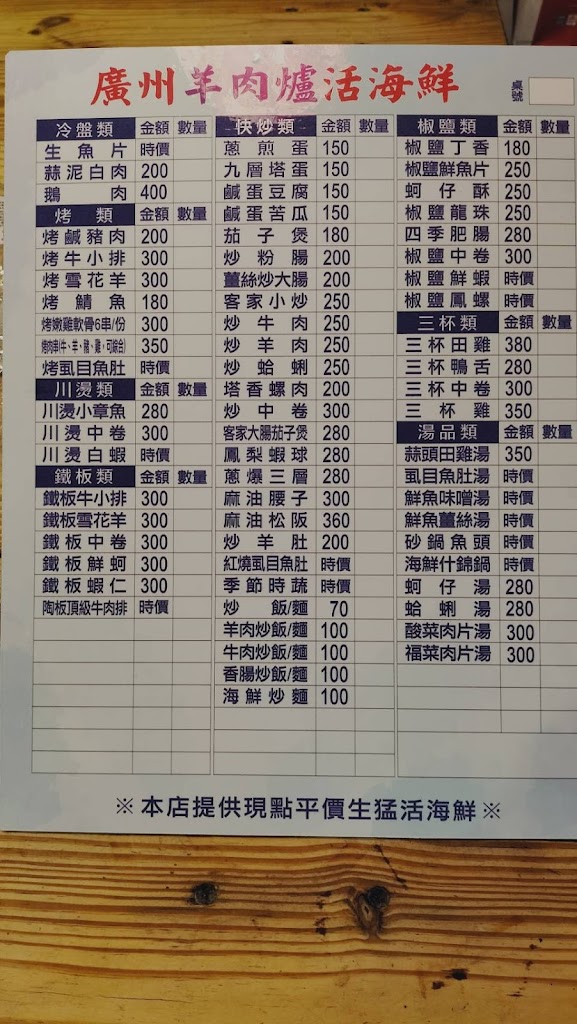 廣州羊肉爐活海鮮
桌號
冷盤類 金額 數量
生魚片 時價
蒜泥白肉 200
鵝肉 400
烤類 金額 數量
烤鹹豬肉 200
烤牛小排 300
烤雪花羊 300
烤鯖魚 180
烤嫩雞軟骨6串/份 300
烤肉串(牛、羊、豬、雞,可綜合) 350
烤虱目魚肚 時價
川燙類 金額 數量
川燙小章魚 280
川燙中卷 300
川燙白蝦 時價
鐵板類 金額 數量
鐵板牛小排 300
鐵板雪花羊 300
鐵板中卷 300
鐵板鮮蚵 300
鐵板蝦仁 300
陶板頂級牛肉排 時價
快炒類 金額 數量
蔥煎蛋 150
九層塔蛋 150
鹹蛋豆腐 150
鹹蛋苦瓜 150
茄子煲 180
炒粉腸 200
薑絲炒大腸 200
客家小炒 250
炒牛肉 250
炒羊肉 250
炒蛤蜊 250
塔香螺肉 200
炒中卷 300
客家大腸茄子煲 280
鳳梨蝦球 280
蔥爆三層 280
麻油腰子 300
麻油松阪 360
炒羊肚 200
紅燒虱目魚肚 時價
季節時蔬 時價
炒飯/麵 70
羊肉炒飯/麵 100
牛肉炒飯/麵 100
香腸炒飯/麵 100
海鮮炒麵 100
椒鹽類 金額 數量
椒鹽丁香 180
椒鹽鮮魚片 250
蚵仔酥 250
椒鹽龍珠 250
四季肥腸 280
椒鹽中卷 300
椒鹽鮮蝦 時價
椒鹽鳳螺 時價
三杯類 金額 數量
三杯田雞 380
三杯鴨舌 280
三杯中卷 300
三杯雞 350
湯品類 金額 數量
蒜頭田雞湯 350
虱目魚肚湯 時價
鮮魚味噌湯 時價
鮮魚薑絲湯 時價
砂鍋魚頭 時價
海鮮什錦鍋 時價
蚵仔湯 280
蛤蜊湯 280
酸菜肉片湯 300
福菜肉片湯 300
※本店提供現點平價生猛活海鮮※